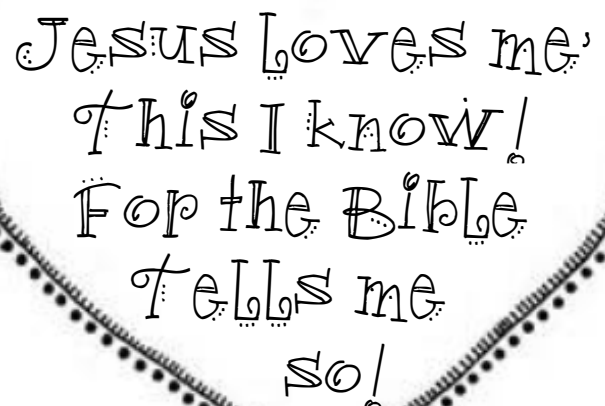 Jesus Loves me,
This I know!
For the Bible
Tells me
so!